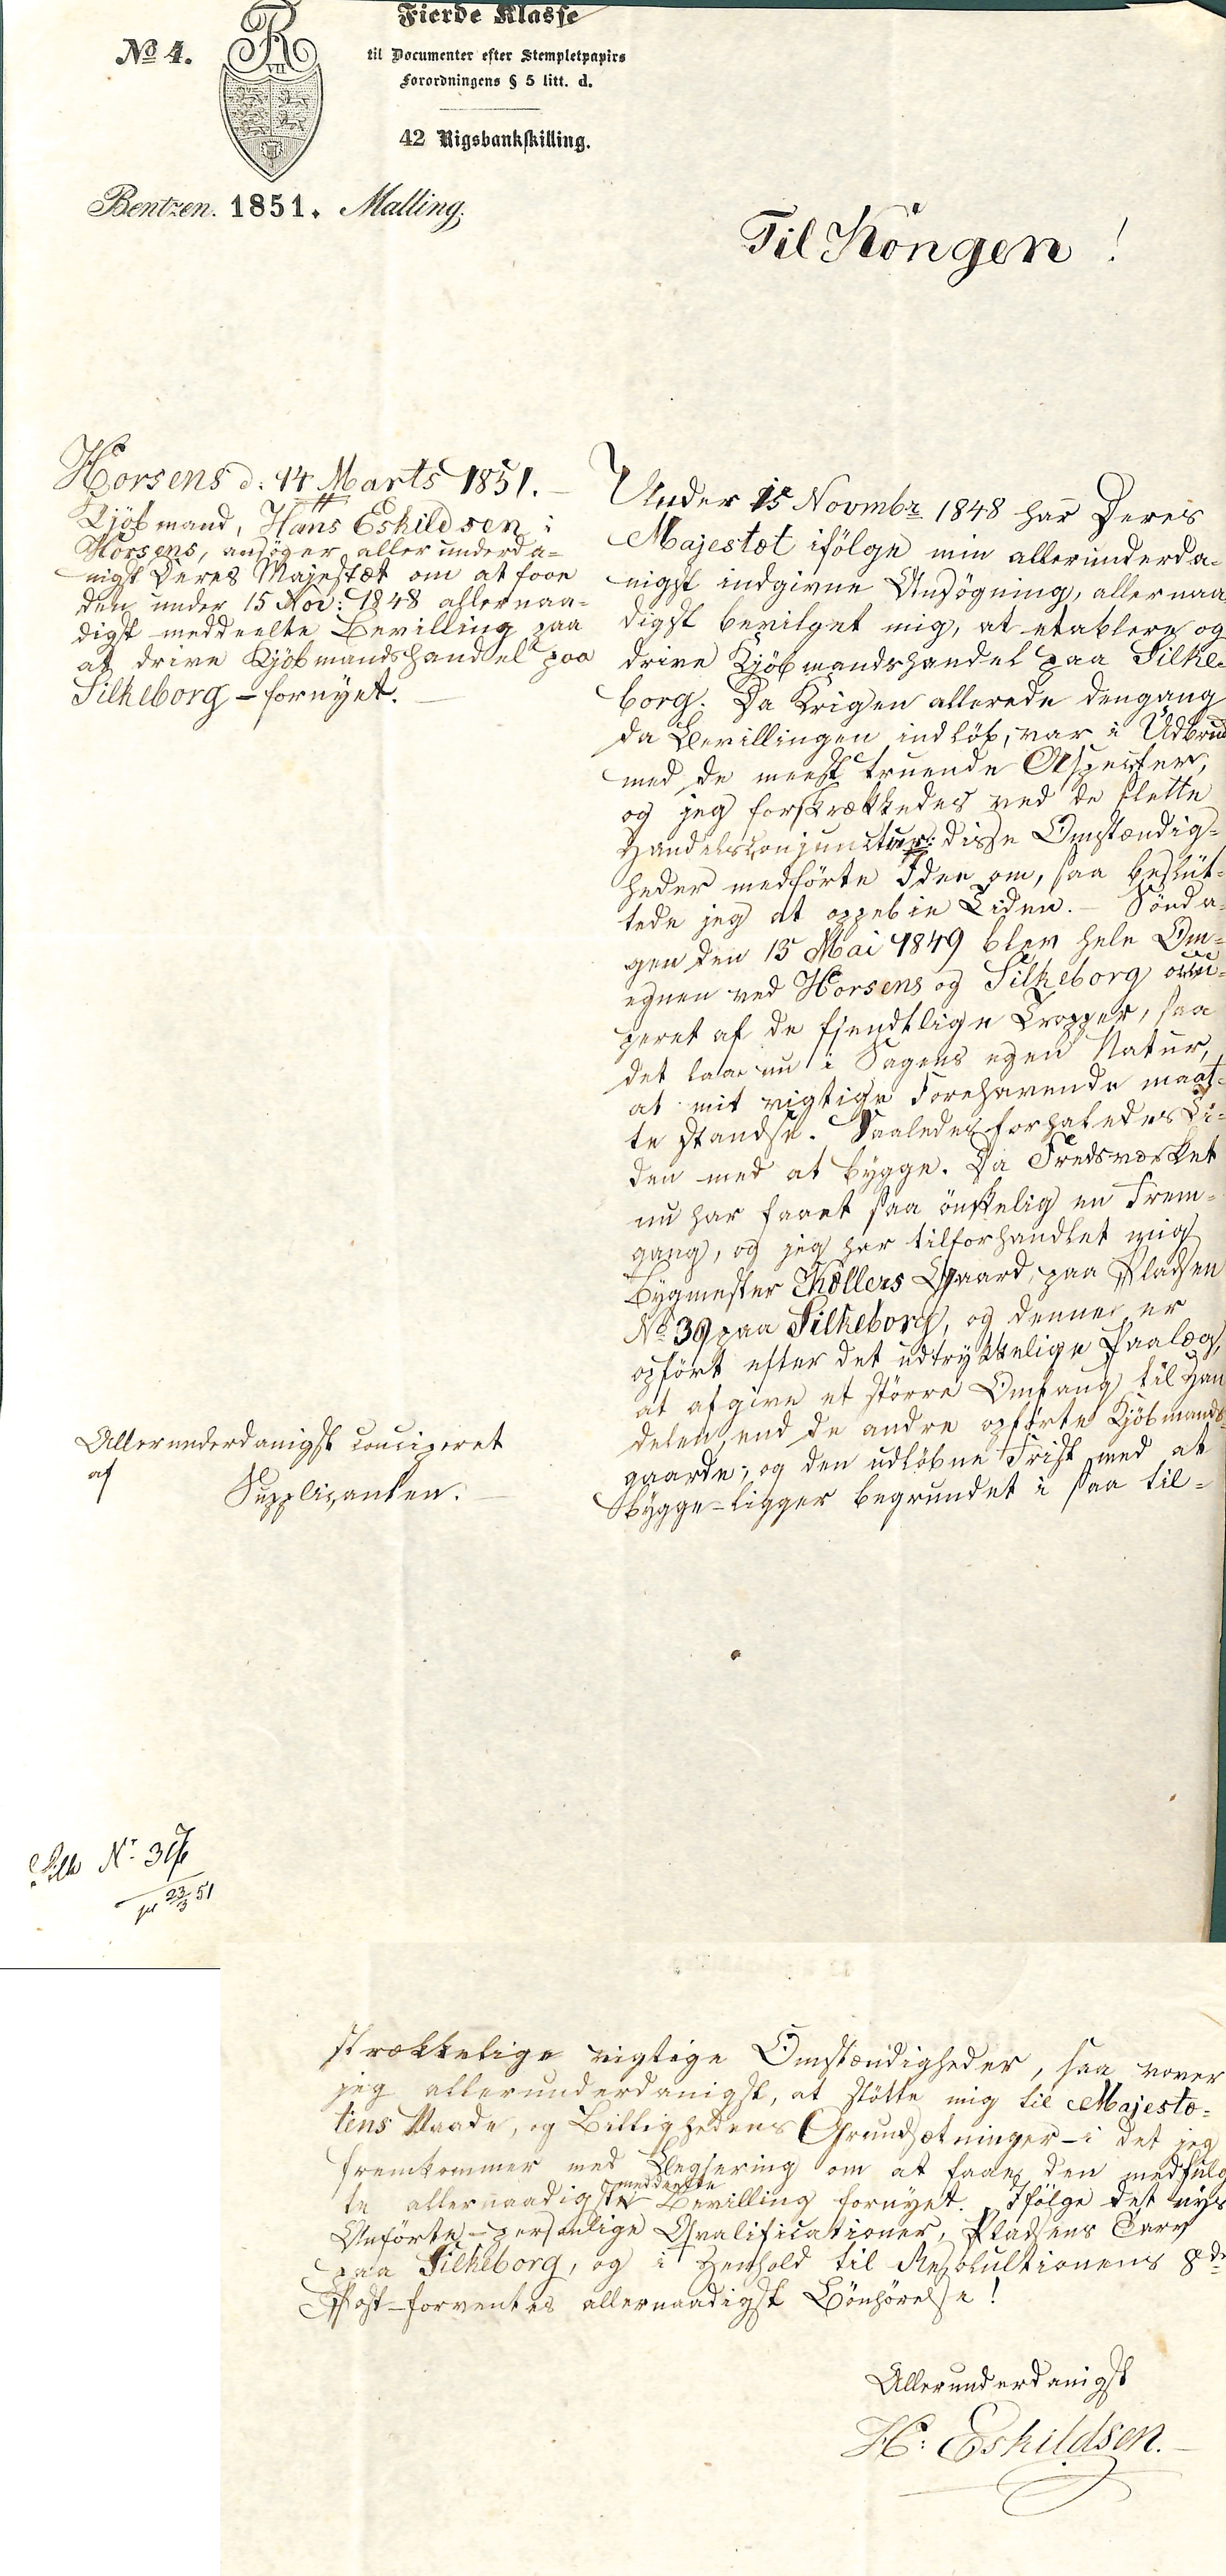 No 4.
R
VII
Fierde Klasse
til Documenter efter Stempletpapirs
Forordningens § 5 litt. d.
42 Rigsbankskilling.
Bentzen. 1851. Malling.
Til Kongen!
Horsens d: 14 Marts 1851. –
Kjöbmand, Hans Eskildsen i
Horsens, ansöger allerunderda=
nigst Deres Majestæt om at faae
den under 15 Nov: 1848 allernaa=
digst meddeelte Bevilling paa
at drive Kjöbmandshandel paa
Silkeborg – fornyet. –
Under 15 Novmbr 1848 har Deres
Majestæt ifölge min allerunderda=
nigst indgivne Ansögning, allernaa
digst bevilget mig, at etablere og
drive Kjöbmandshandel paa Silke=
borg. Da Krigen allerede dengang
da Bevillingen indlöb, var i Udbrud
med de meest truende Aspecter,
og jeg forskrækkedes ved de slette
Handelsconjuncturer disse Omstændig=
heder medförte Ideen om, saa beslüt=
tede jeg at oppebie Tiden. – Sönda=
gen den 13 Mai 1849 blev hele Om=
egnen ved Horsens og Silkeborg occu=
peret af de fjendtlige Tropper, saa
det laae nu i Sagens egen Natur,
at mit vigtige Forehavende maat=
te standse. Saaledes forhaledes Ti=
den med at bygge. Da Fredsværket
nu har faaet saa önskelig en Frem=
gang, og jeg har tilforhandlet mig
Bygmester Køllers Gaard, paa Pladsen
No 39 paa Silkeborg, og denne er
opfört efter det udtrykkelige Paalæg,
at afgive et större Omfang til Han
delen, end de andre opförte Kjöbmands=
gaarde; og den udlöbne Frist med at
bygge – ligger begrundet i saa til=
Allerunderdanigst conciperet
af
Supplicanten. –
Silk No 316
23/3 51
strækkelige vigtige Omstændigheder, saa vover
jeg allerunderdanigst, at stötte mig til Majestæ=
tens Naade, og Billighedens Grundsætninger – i det jeg
fremkommer med Begjering om at faae den medfulg
te allernaadigste meddeelte Bevilling fornyet. Ifölge det nys
Anförte – personlige Qvalificationer, Pladsens Tarv
paa Silkeborg, og i Henhold til Resolultionens 8de
Post – forventes allernaadigst Bönhörelse!
Allerunderdanigst
H: Eskildsen. –